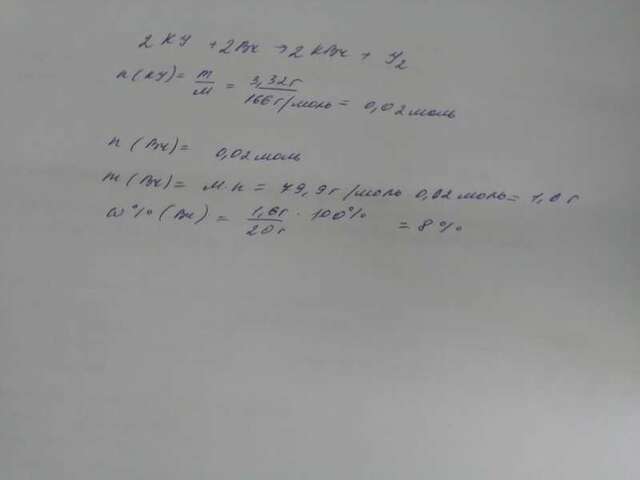 2 KУ + 2Br → 2 KBr + У2
n(KУ) = m/M = 3,32г/166г/моль = 0,02 моль
n (Br) = 0,02 моль
m (Br) = M·n = 79,9г/моль 0,02 моль = 1,6 г
ω% (Br) = 1,6г/20г · 100% = 8%